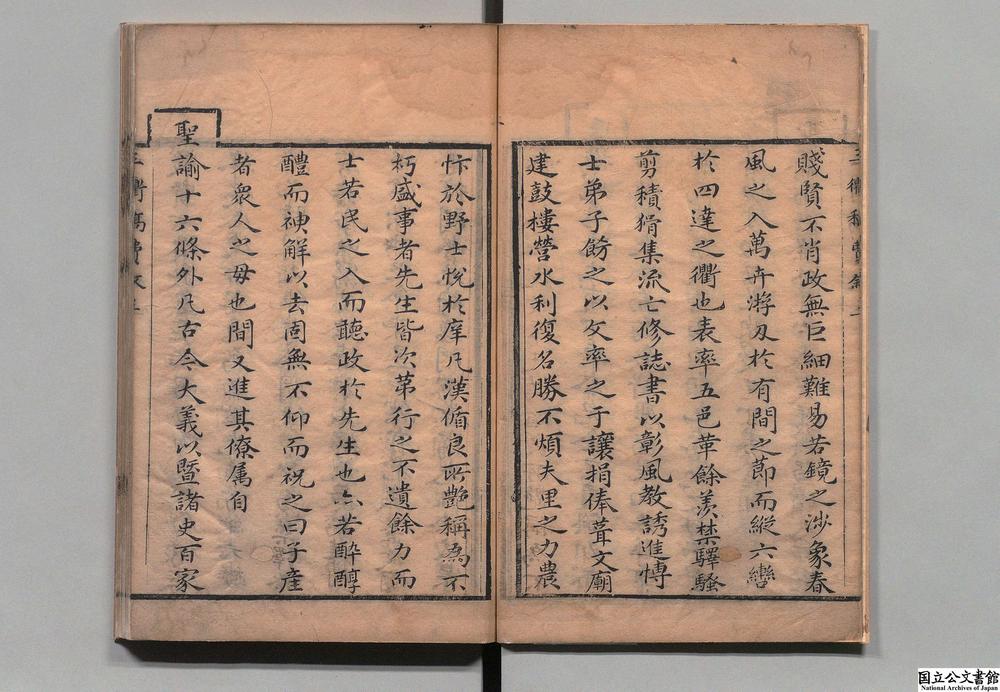 賤賢不肖政無巨細難易若鏡之涉象春
風之入萬卉游刃於有間之節而縱六轡
於四達之衢也表率五邑革餘羡禁驛騷
剪積猾集流亡修誌書以彰風教誘進慱
士弟子餝之以文率之于讓捐俸葺文廟
建鼓樓營水利復名勝不煩夫里之力農
忭於野士悅於庠凡漢循良所艷稱為不
朽盛事者先生皆次苐行之不遺餘力而
士若民之入而聽政於先生也亦若酔醇
醴而神解以去固無不仰而祝之曰子產
者衆人之母也間又進其僚属自
聖諭十六條外凡古今大義以暨諸史百家
国立公文書館
National Archives of Japan